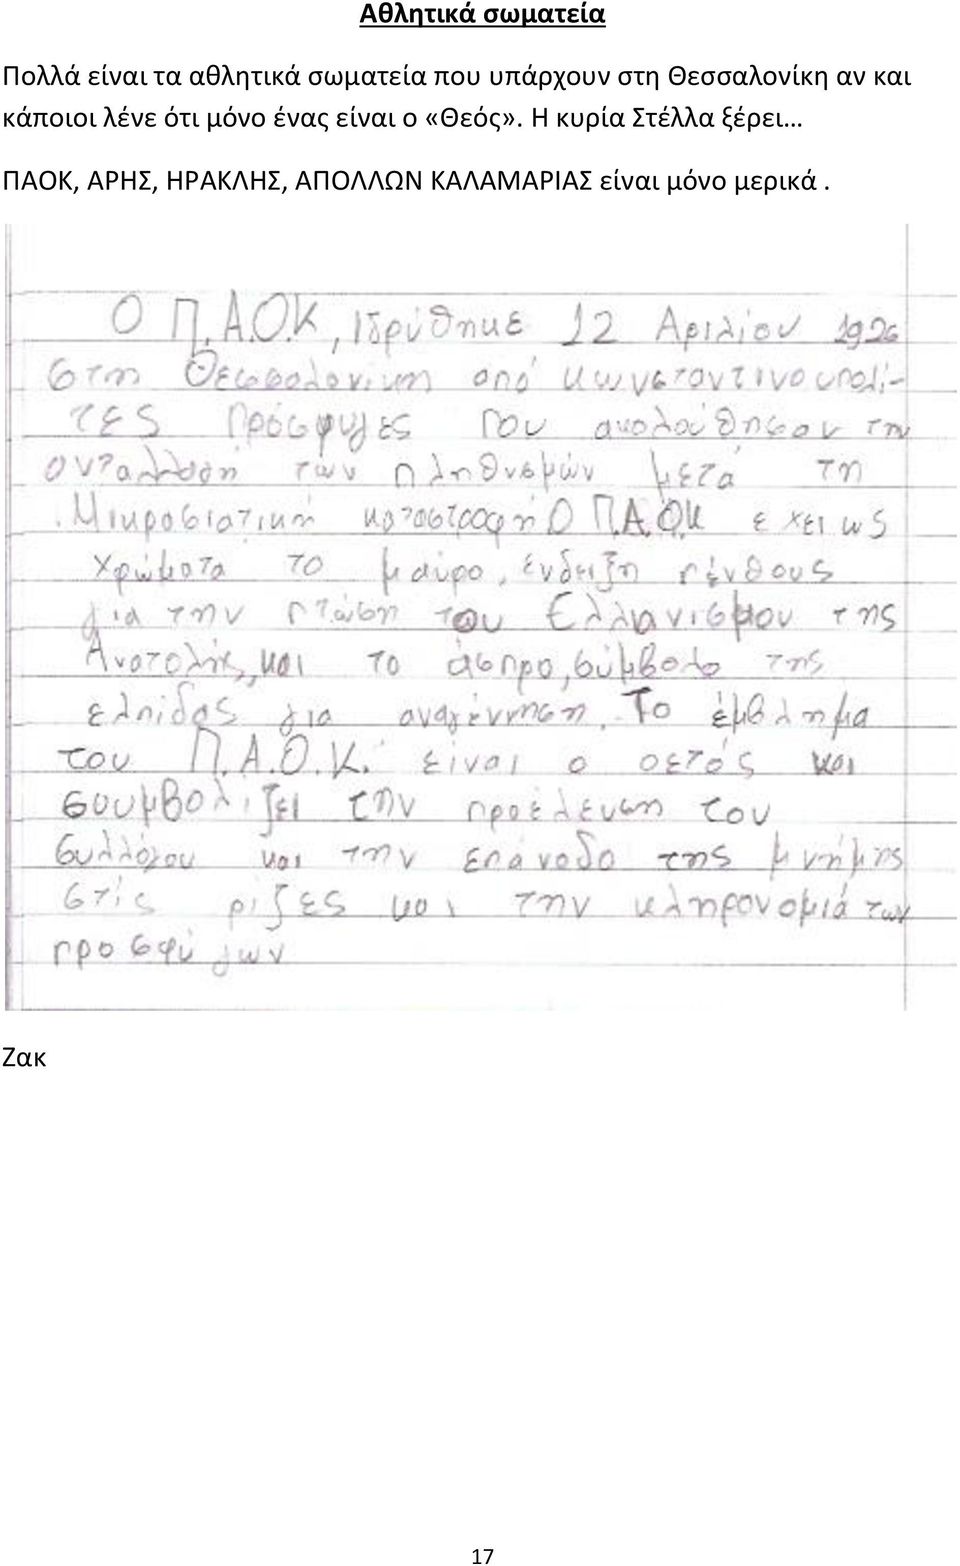 Αθλητικά σωματεία
Πολλά είναι τα αθλητικά σωματεία που υπάρχουν στη Θεσσαλονίκη αν και
κάποιοι λένε ότι μόνο ένας είναι ο «Θεός». Η κυρία Στέλλα ξέρει…
ΠΑΟΚ, ΑΡΗΣ, ΗΡΑΚΛΗΣ, ΑΠΟΛΛΩΝ ΚΑΛΑΜΑΡΙΑΣ είναι μόνο μερικά .
Ο Π.Α.Ο.Κ, Ιδρύθηκε 12 Αριλίου 1926
στη Θεσσολονίκη από κωνσταντινουπολί-
τες Πρόσφυγες Που ακολούθησαν την
ανταλλαγή των πληθυσμών μετά τη
Μικροσιατική καταστροφή Ο Π.Α.ΟΚ εχει ως
χρώματα το μαύρο, ένδειξη πένθους
για την πτώση του Ελλιανισμου της
Ανατολής, και το άσπρο, σύμβολο της
ελπίδας για αναγέννηση. Το έμβλημα
του Π.Α.Ο.Κ. είναι ο αετός και
σουμβολιζει την προέλευση του
συλλόγου και την επάνοδο της μνήμης
στίς ριζες και την κληρονομιά των
προσφύγων
Ζακ
17